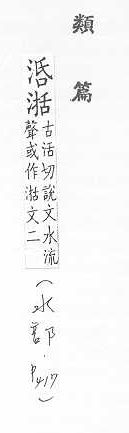 類篇
古活切說文水流
聲或作 文二
(水部·P417)